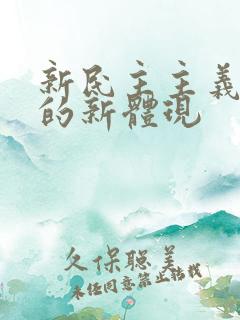 新民主主義
的新體現
久保聡美
未经同意禁止转载